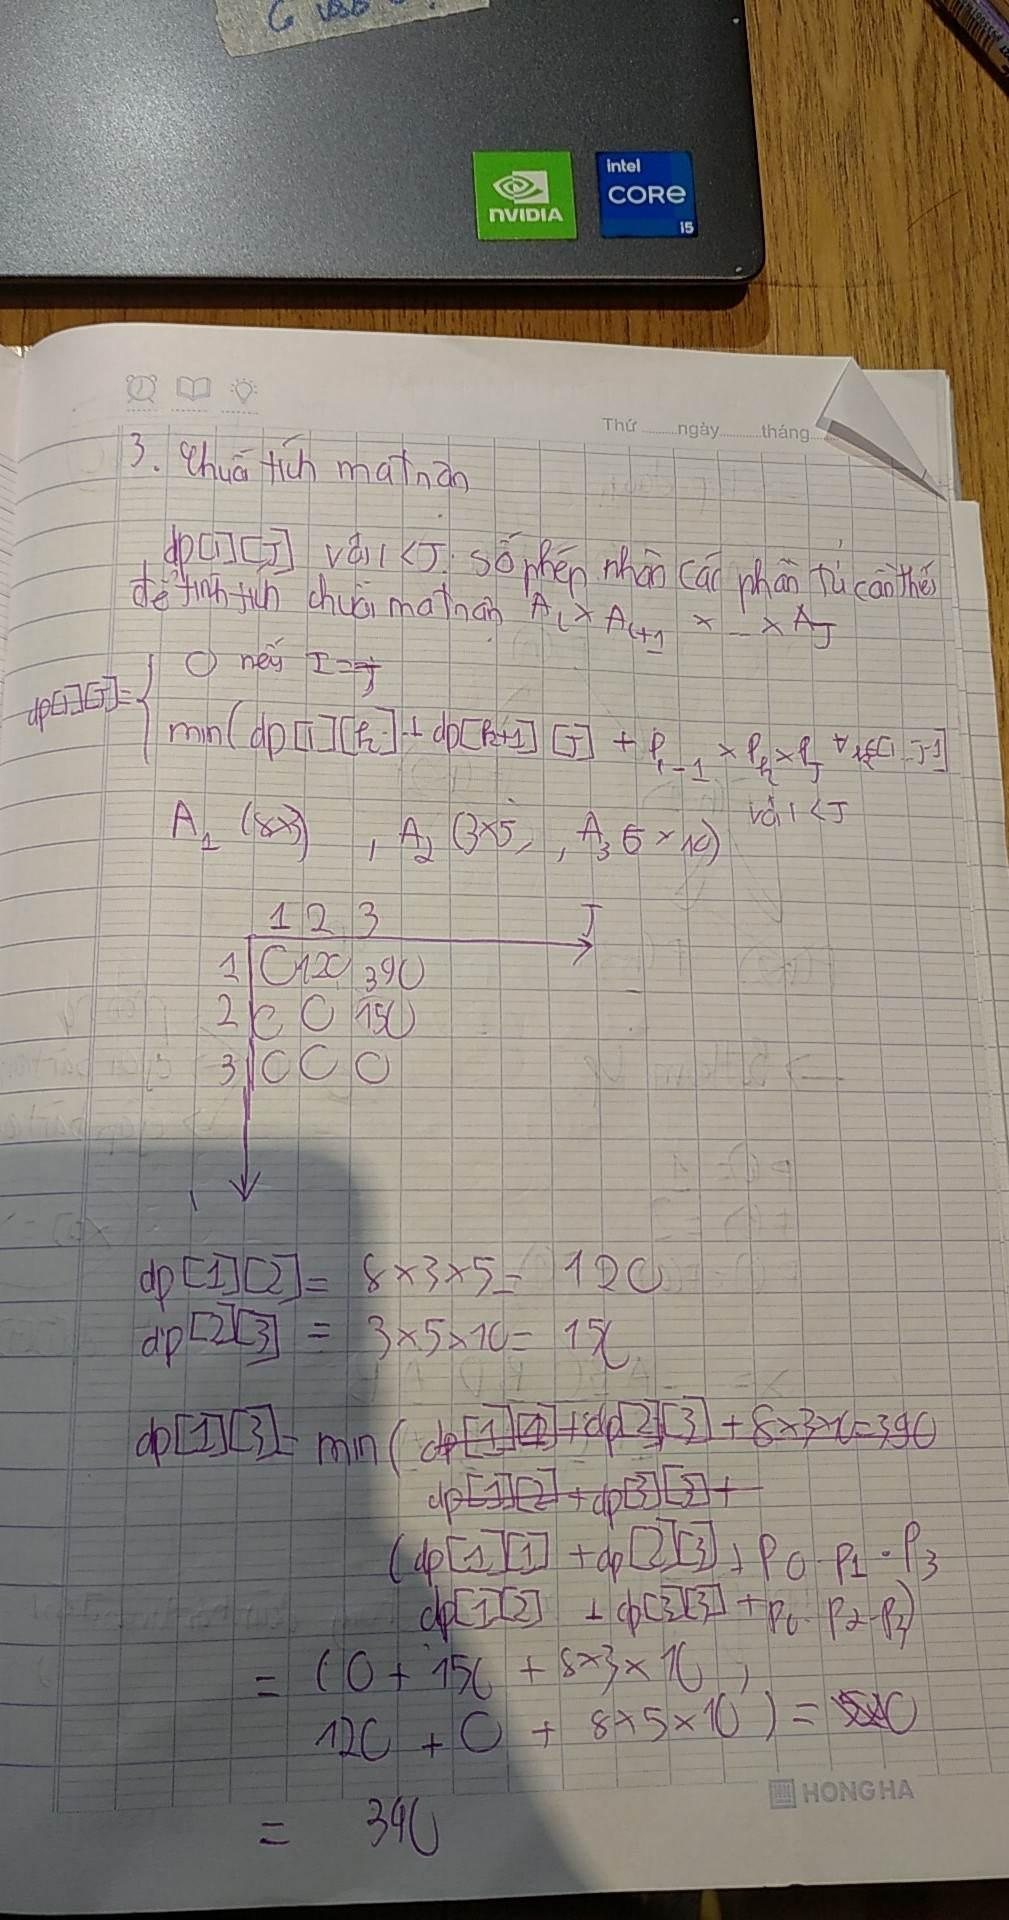 intel
CORe
i5
nVIDIA
Thứ ngày tháng
3. Chuỗi tích ma trận
dp[i][J] với i < J: số phép nhân các phần tử cần thiết
để tính tích chuỗi ma trận A_i × A_{i+1} × ... × A_J
dp[i][J] = { 0 nếu I = J
min(dp[i][k] + dp[k+1][J] + P_{i-1} × P_k × P_J ∀ k∈[i - J-1]
với i < J
A_1 (8×3) , A_2 (3×5) , A_3 (5 × 10)
1 2 3 J
1 0 120 390
2 0 0 150
3 0 0 0
dp[1][2] = 8×3×5 = 120
dp[2][3] = 3×5×10 = 150
dp[1][3] = min( dp[1][1] + dp[2][3] + 8×3×10 = 390
dp[1][2] + dp[3][3] +
(dp[1][1] + dp[2][3] + P_0 . P_1 . P_3
dp[1][2] + dp[3][3] + P_0 . P_2 . P_3)
= (0 + 150 + 8×3×10 ,
120 + 0 + 8×5×10) =
= 390
HONG HA